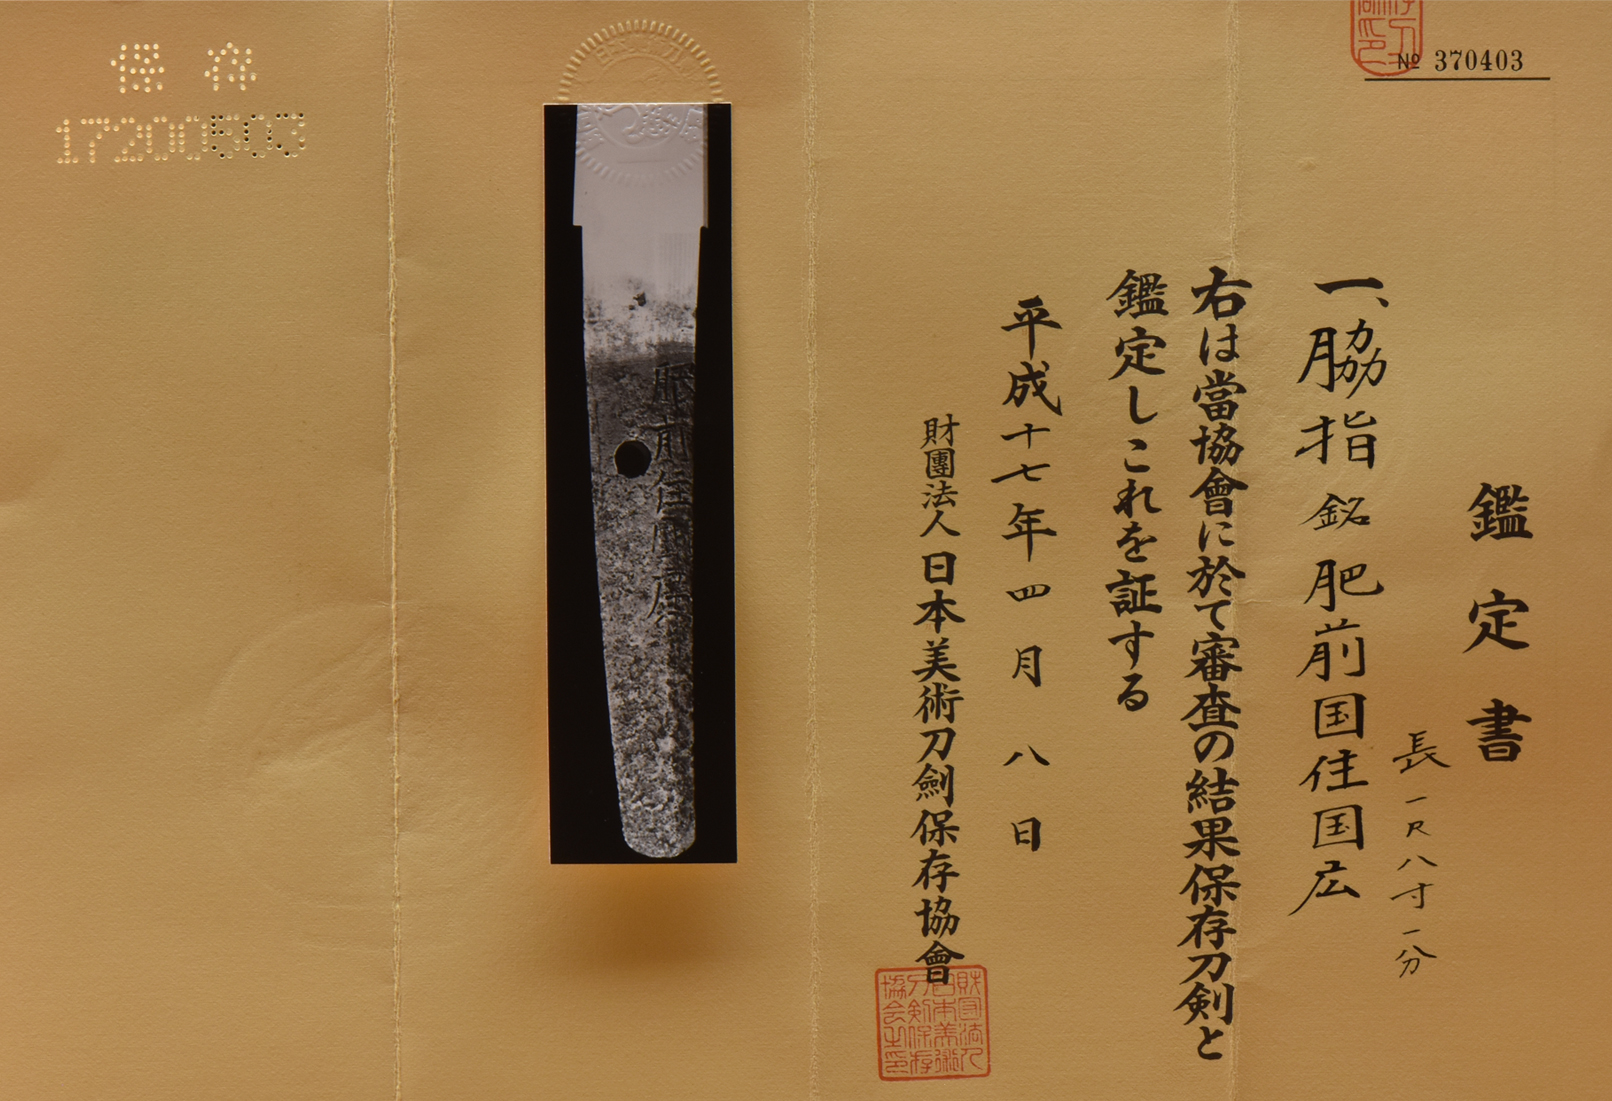 № 370403
鑑定書
長一尺八寸一分
一、脇指 銘 肥前国住国広
右は當協會に於て審査の結果保存刀剣と
鑑定しこれを証する
平成十七年四月八日
財團法人日本美術刀劍保存協會
財団法人日本美術刀剣保存協会之印
保存
17200503